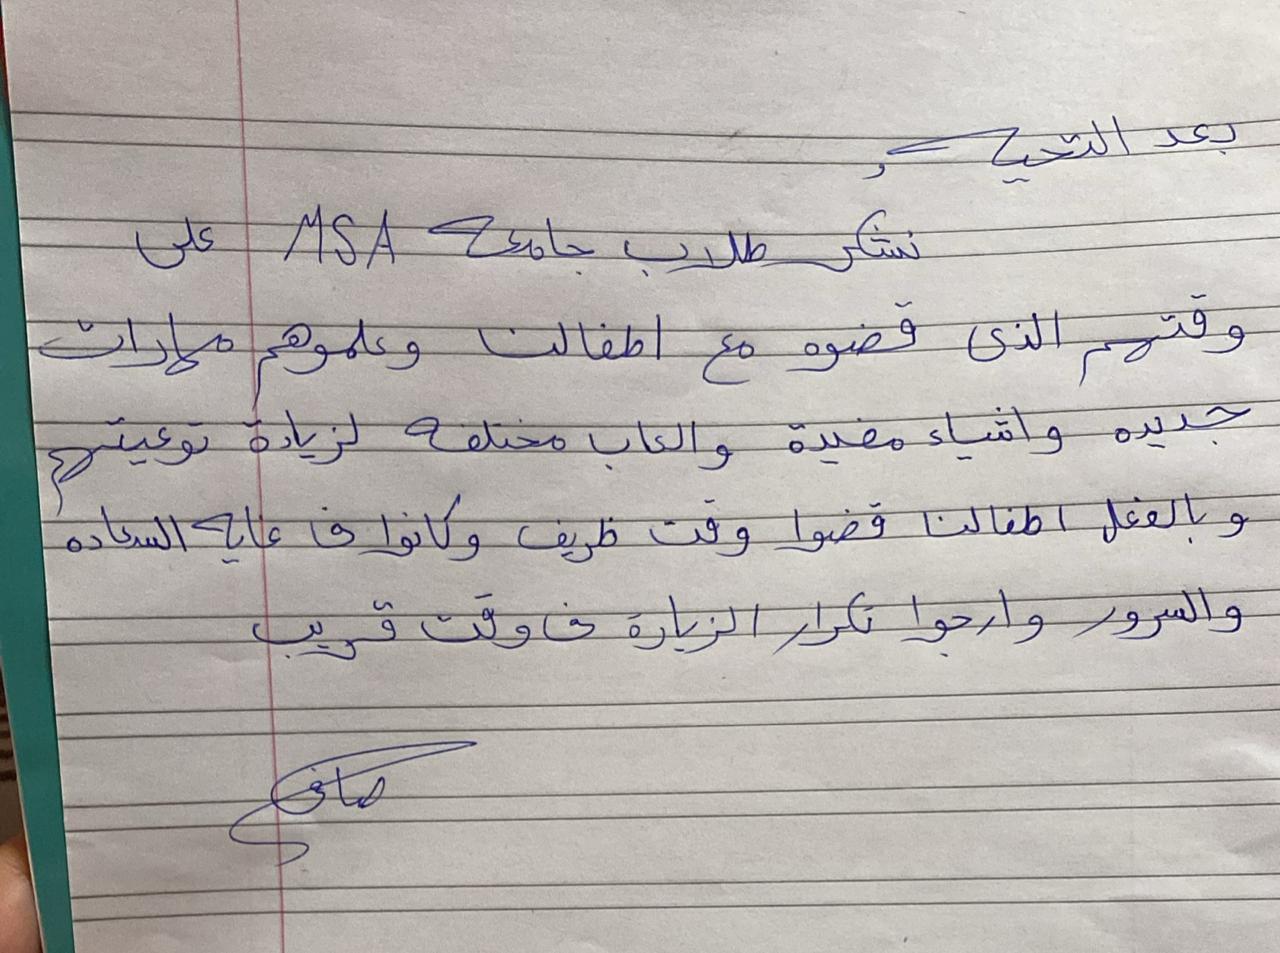 بعد التحية،
نشكر طلاب جامعة MSA على
وقتهم الذى قضوه مع اطفالنا وعلموهم مهارات
جديده واشياء مفيدة والعاب مختلفه لزيادة توعيتهم
و بالفعل اطفالنا قضوا وقت ظريف وكانوا فى غاية السعاده
والسرور وارجوا تكرار الزيارة فى وقت قريب
صافى